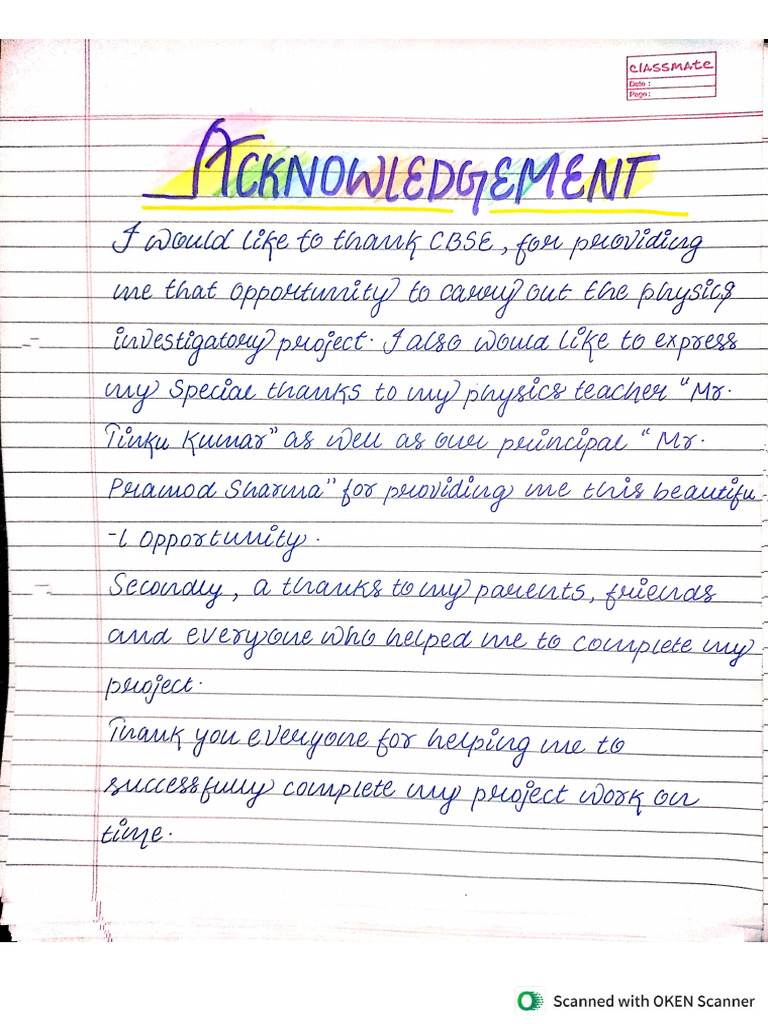 classmate
Date :
Page :
ACKNOWLEDGEMENT
I would like to thank CBSE, for providing
me that opportunity to carry out the physics
investigatory project. I also would like to express
my Special thanks to my physics teacher "Mr.
Tinku Kumar" as well as our principal "Mr.
Pramod Sharma" for providing me this beautifu
-l opportunity.
Secondly, a thanks to my parents, friends
and everyone who helped me to complete my
project.
Thank you everyone for helping me to
successfully complete my project work on
time.
Scanned with OKEN Scanner